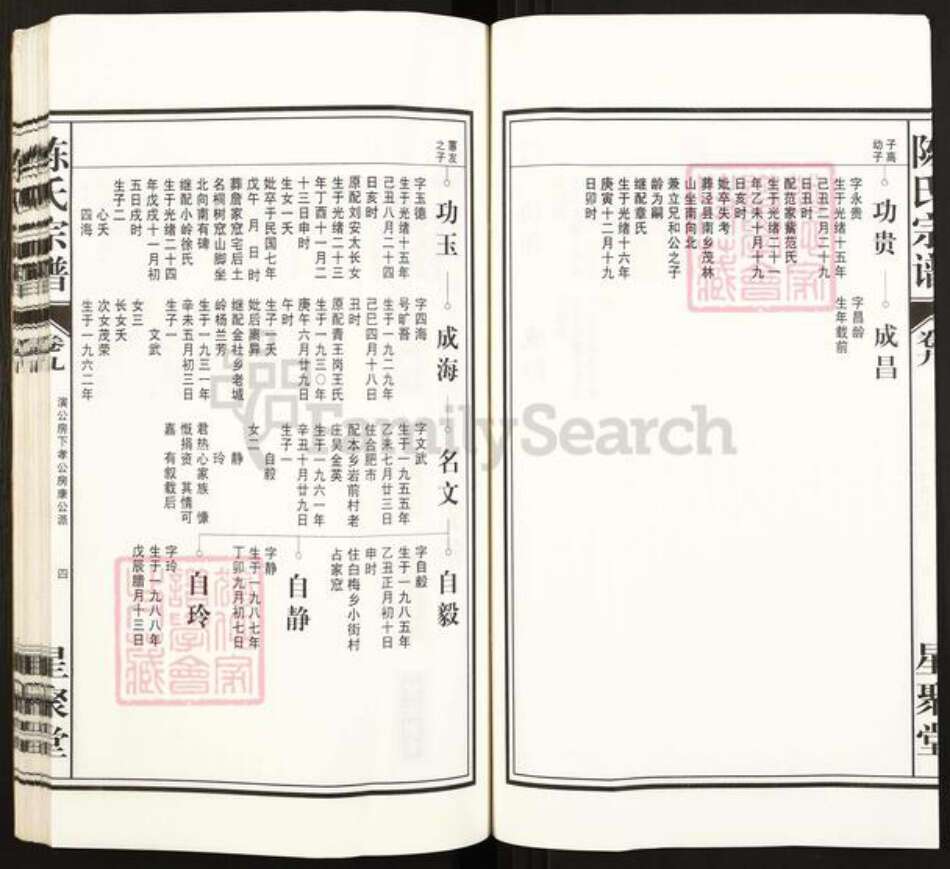 陈氏宗谱
卷九
星聚堂
子高
幼子
功贵
字永贵
生于光绪十五年
己丑二月二十九
日丑时
配范家觜范氏
生于光绪二十一
年乙未十月十九
日亥时
妣卒失考
葬泾县南乡茂林
山坐南向北
兼立兄和公之子
龄为嗣
继配章氏
生于光绪十六年
庚寅十二月十九
日卯时
成昌
字昌龄
生年载前
之子
功玉
字玉德
生于光绪十五年
己丑八月二十四
日亥时
原配刘安太长女
生于光绪二十三
年丁酉十一月二
十三日申时
生女一夭
妣卒于民国七年
戊午 月 日 时
葬詹家窊宅后土
名桐树窊山脚坐
北向南有碑
继配小岭徐氏
生于光绪二十四
年戊戌十一月初
五日戌时
生子二
心夭
四海
成海
字四海
号旷吾
生于一九二九年
己巳四月十八日
丑时
原配青王岗王氏
生于一九三〇年
庚午六月廿九日
午时
生子一夭
妣后离异
继配金社乡老城
岭杨兰芳
生于一九三一年
辛未五月初三日
生子一
文武
女三
长女夭
次女茂荣
生于一九六二年
名文
字文武
生于一九五五年
乙未七月廿三日
住合肥市
配本乡岩前村老
庄吴金英
生于一九六一年
辛丑十月廿九日
生子一
自毅
女二
静
玲
君热心家族 慷
慨捐资 其情可
嘉 有叙载后
自毅
字自毅
生于一九八五年
乙丑正月初十日
申时
住白梅乡小街村
占家窊
自静
字静
生于一九八七年
丁卯九月初七日
自玲
字玲
生于一九八八年
戊辰腊月十三日
陈氏宗谱
卷九
演公房下孝公房康公派
四
星聚堂
FamilySearch